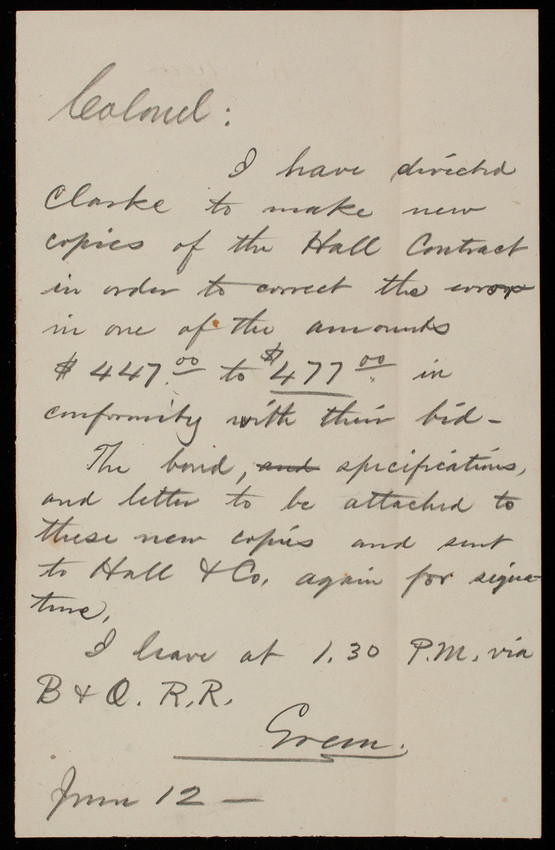 Colonel:
I have directed
Clarke to make new
copies of the Hall Contract
in order to correct the error
in one of the amounts
$447.00 to $477.00 in
conformity with their bid –
The bond, and specifications,
and letter to be attached to
these new copies and sent
to Hall & Co. again for signa-
ture.
I leave at 1.30 P.M. via
B & O. R.R.
June 12 –